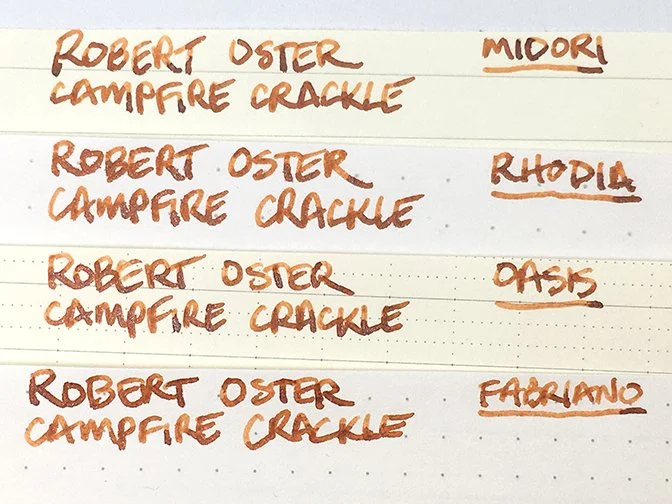 ROBERT OSTER MIDORI
CAMPFIRE CRACKLE
ROBERT OSTER RHODIA
CAMPFIRE CRACKLE
ROBERT OSTER OASIS
CAMPFIRE CRACKLE
ROBERT OSTER FABRIANO
CAMPFIRE CRACKLE